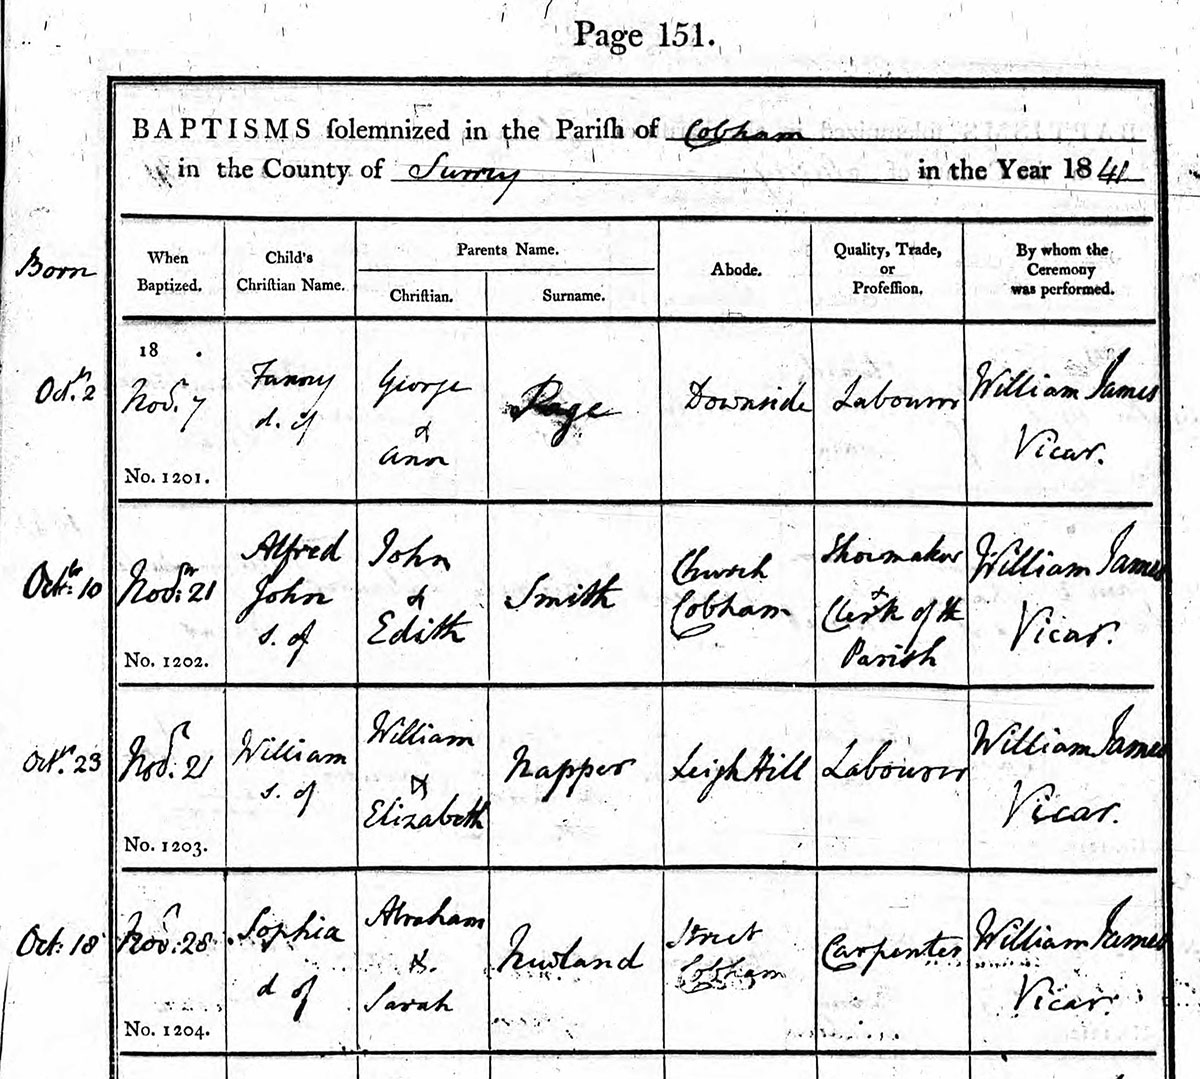 Page 151.
BAPTISMS ſolemnized in the Pariſh of Cobham
in the County of Surrey in the Year 1841
Born
When Baptized.
Child's Chriſtian Name.
Parents Name.
Chriſtian.
Surname.
Abode.
Quality, Trade, or Profeſſion.
By whom the Ceremony was performed.
Octr. 2
18 .
Novr. 7
No. 1201.
Fanny
d. of
George
&
Ann
Page
Downside
Labourer
William James
Vicar.
Octr: 10
Novr: 21
No. 1202.
Alfred
John
s. of
John
&
Edith
Smith
Church
Cobham
Shoemaker
&
Clerk of the
Parish
William James
Vicar.
Octr. 23
Novr. 21
No. 1203.
William
s. of
William
&
Elizabeth
Napper
Leigh Hill
Labourer
William James
Vicar.
Oct: 18
Novr: 28
No. 1204.
Sophia
d of
Abraham
&
Sarah
Newland
Street
Cobham
Carpenter
William James
Vicar.